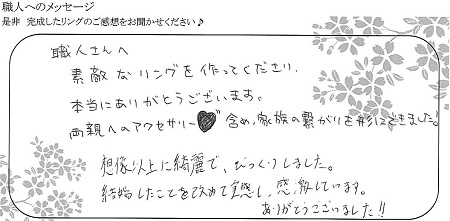 職人へのメッセージ
是非 完成したリングのご感想をお聞かせください♪
職人さんへ
素敵なリングを作ってくださり、
本当にありがとうございます。
両親へのアクセサリー♥含め、家族の繋がりを形にできました。
想像以上に綺麗で、びっくりしました。
結婚したことを改めて実感し、感謝しています。
ありがとうございました!!